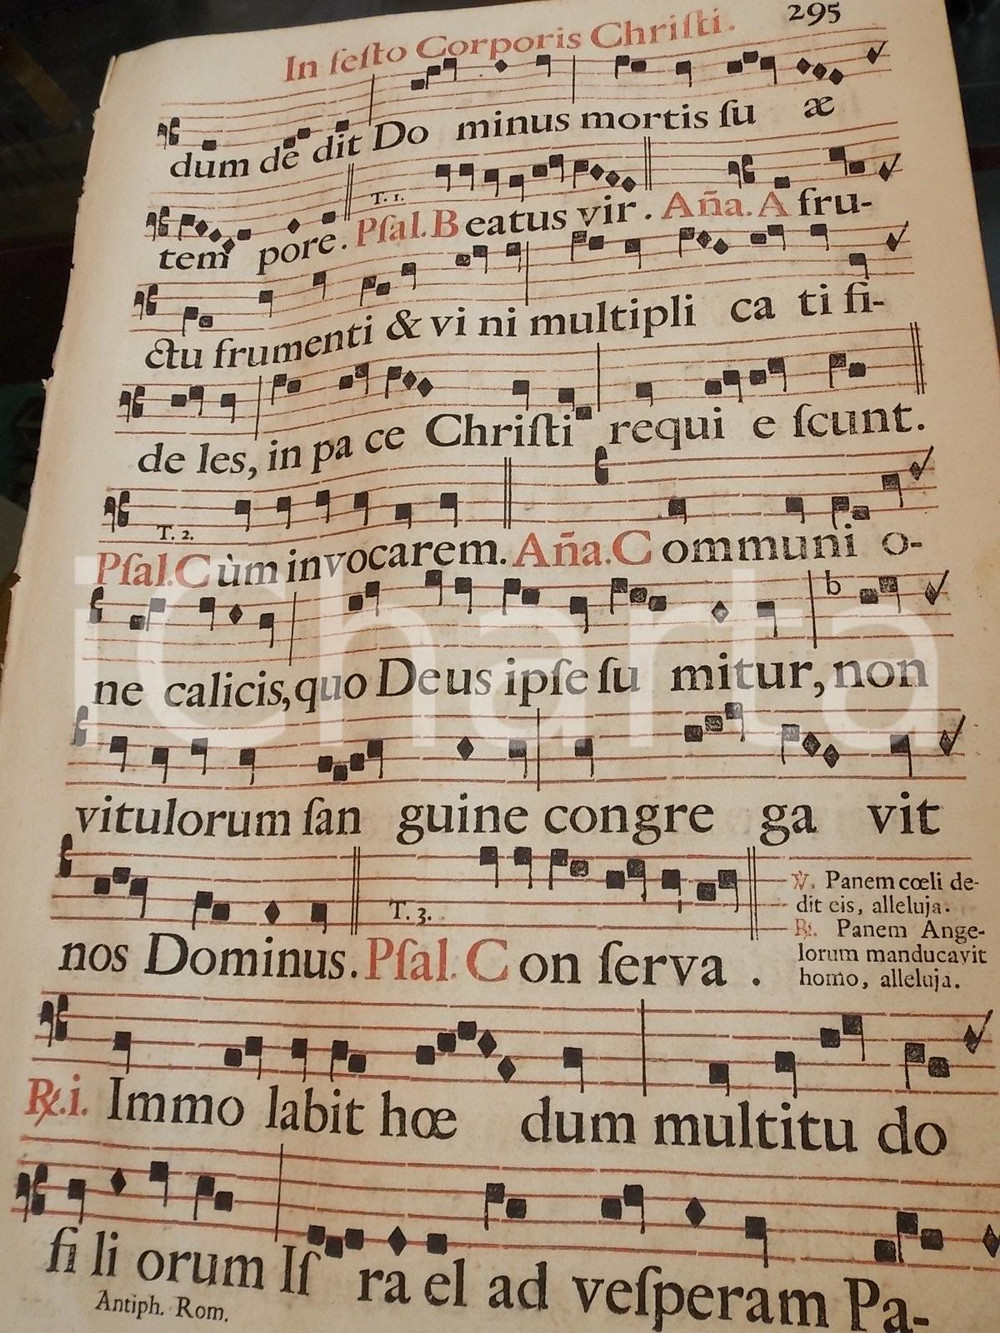 295
In feſto Corporis Chriſti.
dum de dit Do minus mortis ſu æ
T. 1.
tem pore. Pſal. Beatus vir. Aña. A fru-
ctu frumenti & vi ni multipli ca ti fi-
de les, in pa ce Chriſti requi e ſcunt.
T. 2.
Pſal. Cùm invocarem. Aña. Communi o-
b
ne calicis, quo Deus ipſe ſu mitur, non
vitulorum ſan guine congre ga vit
T. 3.
nos Dominus. Pſal. Con ſerva .
℣. Panem cœli de-
dit eis, alleluja.
℟. Panem Ange-
lorum manducavit
homo, alleluja.
℟.i. Immo labit hœ dum multitu do
fi li orum Iſ ra el ad veſperam Pa-
Antiph. Rom.
iCharta